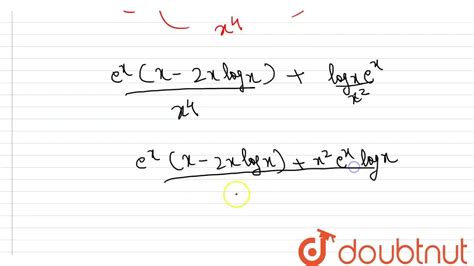 x4
e^x (x - 2x log x) / x^4 + log x e^x / x^2
e^x (x - 2x log x) + x^2 e^x log x
doubtnut